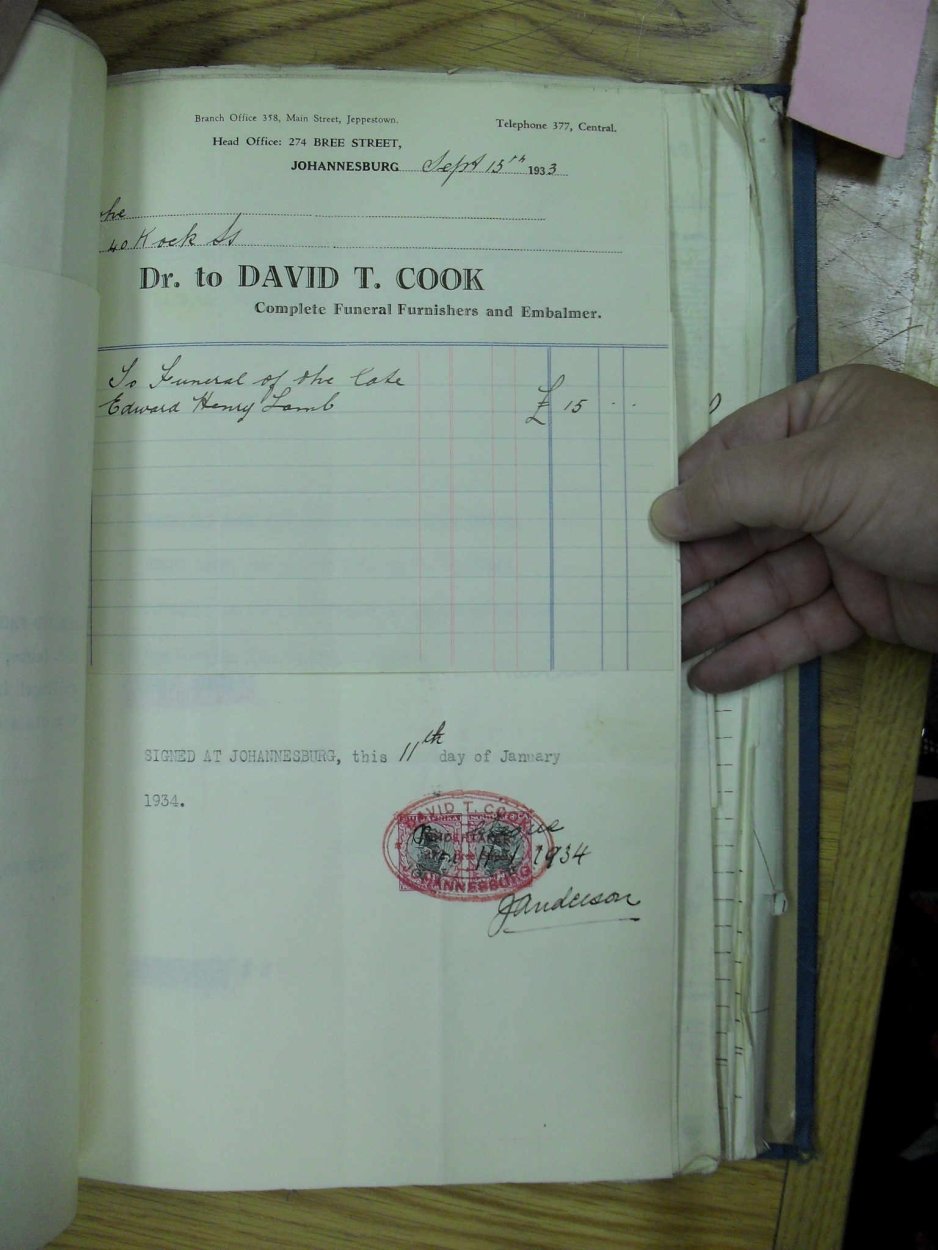 Branch Office 358, Main Street, Jeppestown.
Telephone 377, Central.
Head Office: 274 BREE STREET,
JOHANNESBURG Sept 15th 1933
40 Kock St
Dr. to DAVID T. COOK
Complete Funeral Furnishers and Embalmer.
To Funeral of the late
Edward Henry Lamb £ 15 . .
SIGNED AT JOHANNESBURG, this 11th day of January
1934.
DAVID T. COOK
1934
JOHANNESBURG
JAnderson